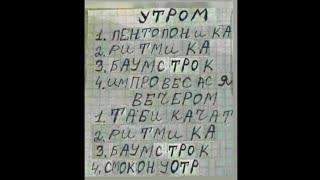 УТРОМ
1. ПЕНТОПОНИКА
2. РИТМИКА
3. БАУМСТРОК
4. ИМПРОВЕСАСЯ
ВЕЧЕРОМ
1. ТАБИКАЧАТ
2. РИТМИКА
3. БАУМСТРОК
4. СМОКОНУОТР